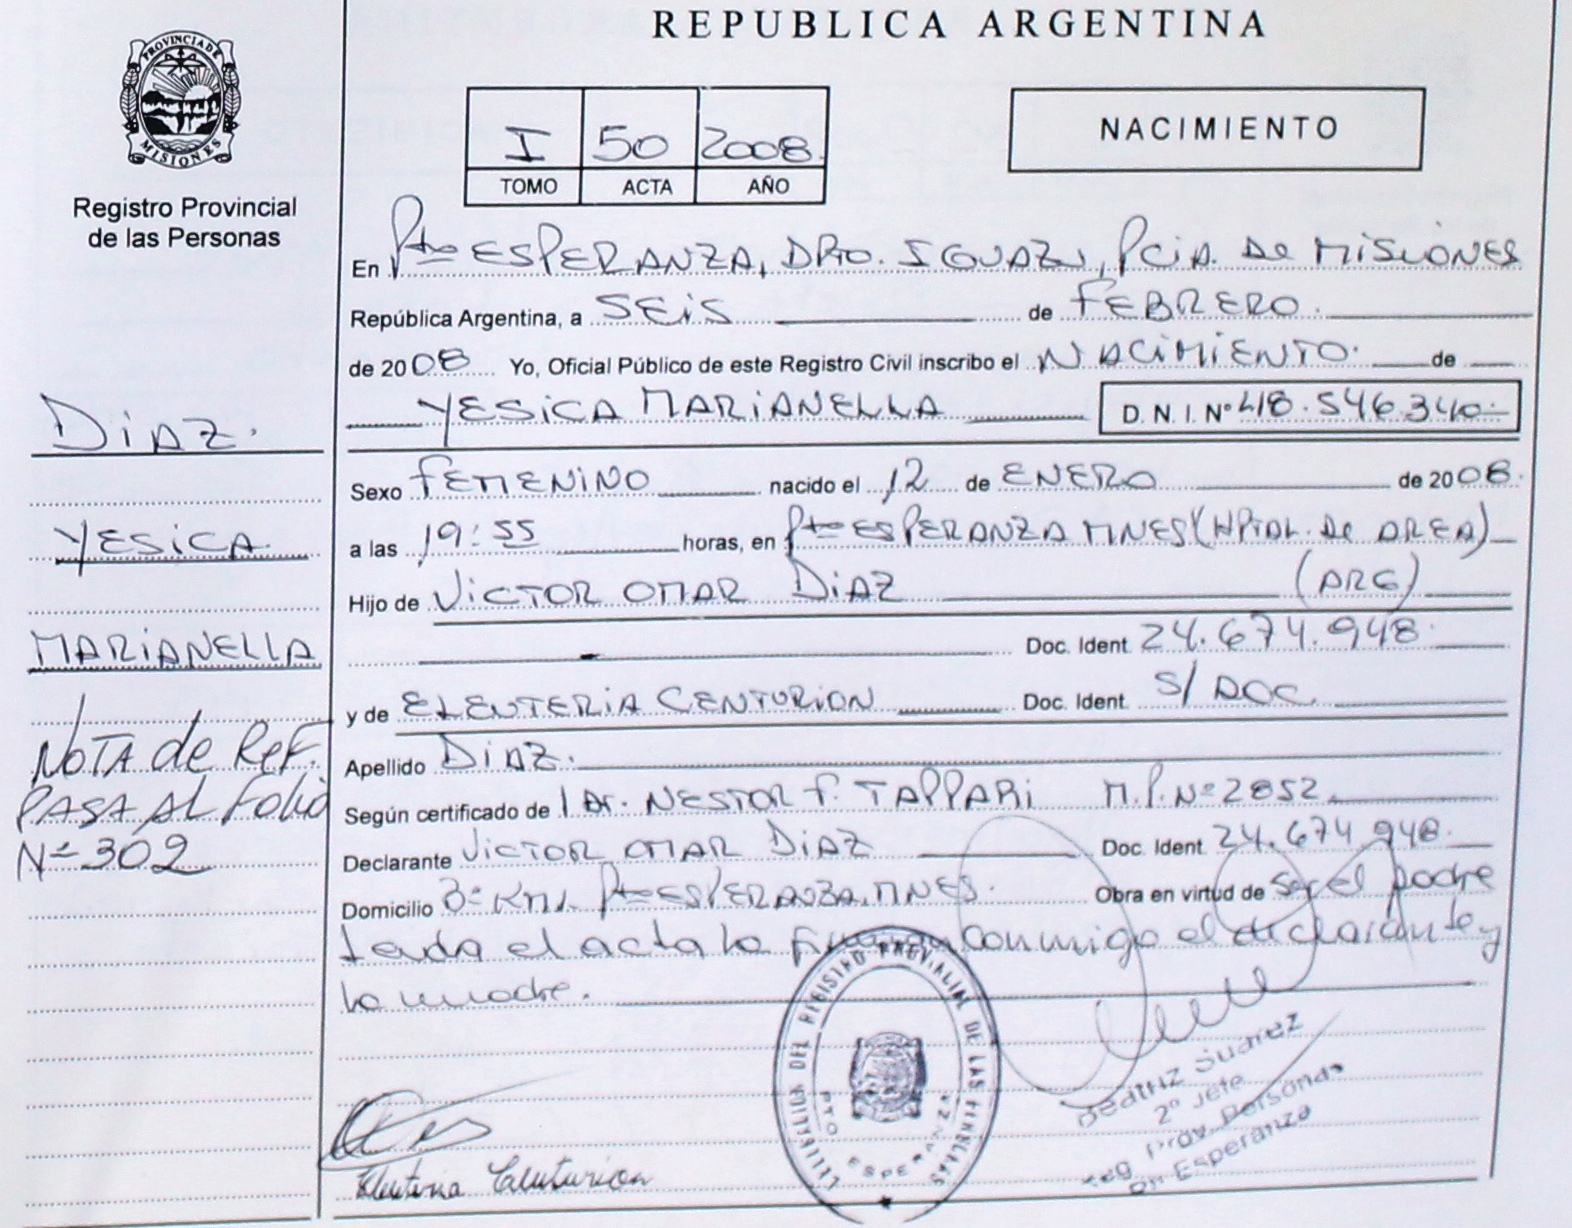 REPUBLICA ARGENTINA
PROVINCIA DE MISIONES
Registro Provincial
de las Personas
I 50 2008
TOMO ACTA AÑO
NACIMIENTO
En Pto ESPERANZA, DPTO. IGUAZU, PCIA. De MISIONES
República Argentina, a SEIS de FEBRERO.
de 2008 Yo, Oficial Público de este Registro Civil inscribo el NACIMIENTO. de
YESICA MARIANELLA D. N. I. Nº 48.546.340
Sexo FEMENINO nacido el 12 de ENERO de 2008.
a las 19:55 horas, en Pto ESPERANZA MNES (HPTAL. de AREA)
Hijo de VICTOR OMAR DIAZ (ARG)
Doc. Ident. 24.674.948.
y de ELEUTERIA CENTURION Doc. Ident. S/ DOC.
Apellido DIAZ.
Según certificado de Dr. NESTOR F. TAPPARI M.P. Nº 2852
Declarante VICTOR OMAR DIAZ Doc. Ident. 24.674.948.
Domicilio 3º KM. Pto ESPERANZA, MNES. Obra en virtud de ser el padre
leida el acta la firman conmigo el declarante y
la madre.
DIAZ.
YESICA
MARIANELLA
NOTA de REF.
PASA AL Folio
Nº 302
Eleuteria Centurion
DEL REGISTRO PROVINCIAL DE LAS PERSONAS
PTO ESPERANZA
Beatriz Suarez
2º Jefe
Reg. Prov. Personas
Pto Esperanza